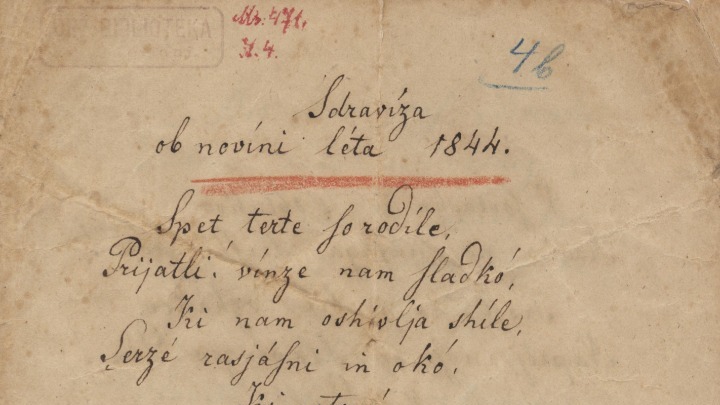 BIBLIOTEKA
Ms. 471.
N. 4.
4b
Sdravíza
ob novíni léta 1844.
Spet terte so rodíle,
Prijatli! vínze nam ſladkó,
Ki nam oshívlja shíle,
Serzé rasjáſni in okó.
Ki